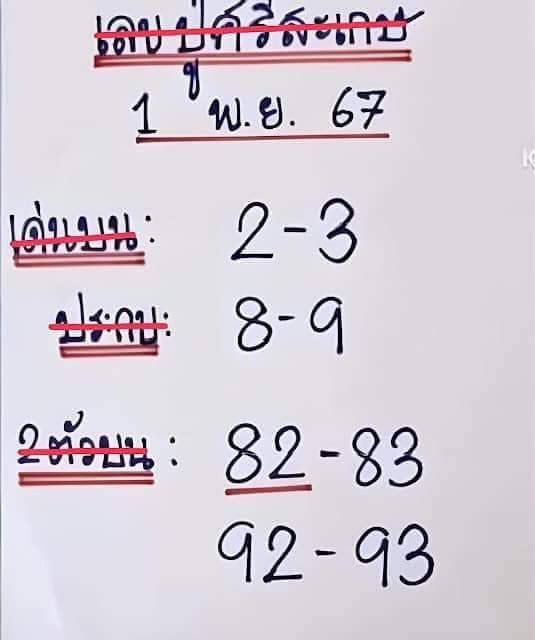 เลขปู่ศรีสะเกษ
1 พ.ย. 67
เด่นบน: 2-3
ประกบ: 8-9
2ตัวบน: 82-83
92-93